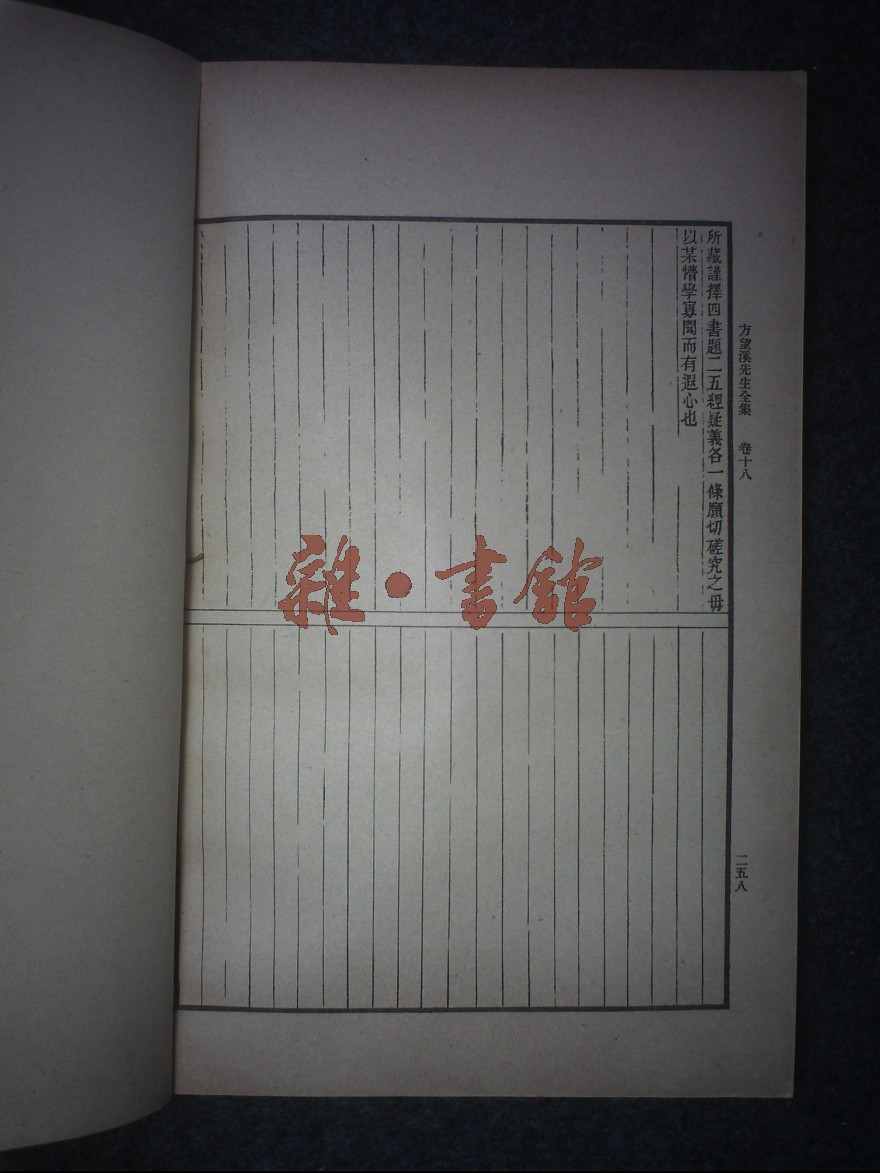 方望溪先生全集 卷十八
二五八
所藏謹擇四書題二五經疑義各一條願切磋究之毋
以某懵學寡聞而有遐心也
雜·書館